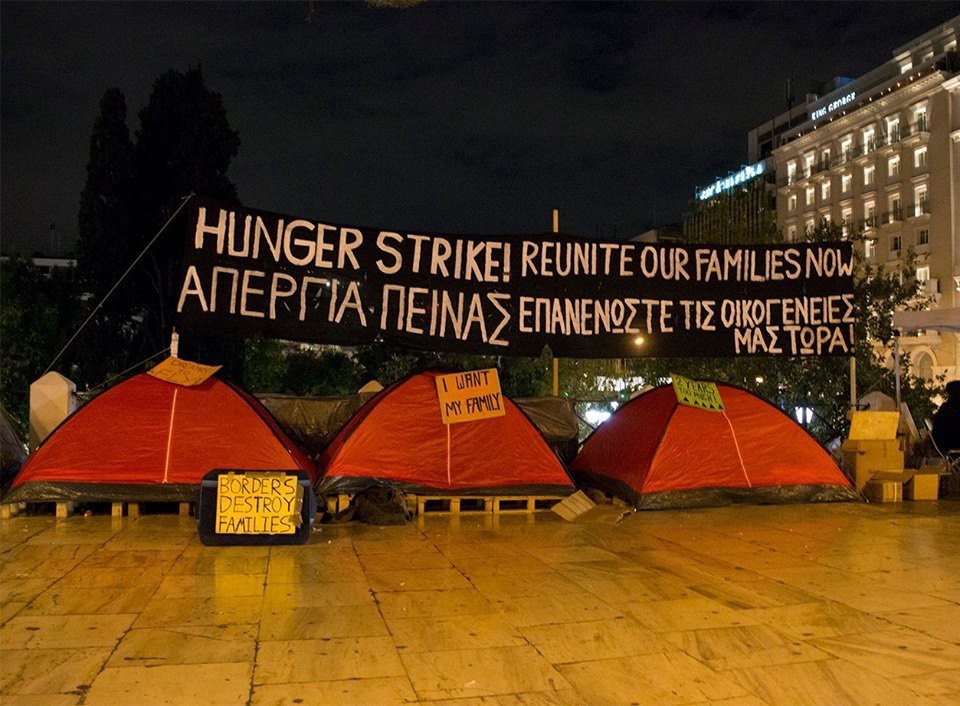 KING GEORGE
HUNGER STRIKE! REUNITE OUR FAMILIES NOW
ΑΠΕΡΓΙΑ ΠΕΙΝΑΣ ΕΠΑΝΕΝΩΣΤΕ ΤΙΣ ΟΙΚΟΓΕΝΕΙΕΣ
ΜΑΣ ΤΩΡΑ!
I WANT
MY FAMILY
2 YEAR
BORDERS
DESTROY
FAMILIES